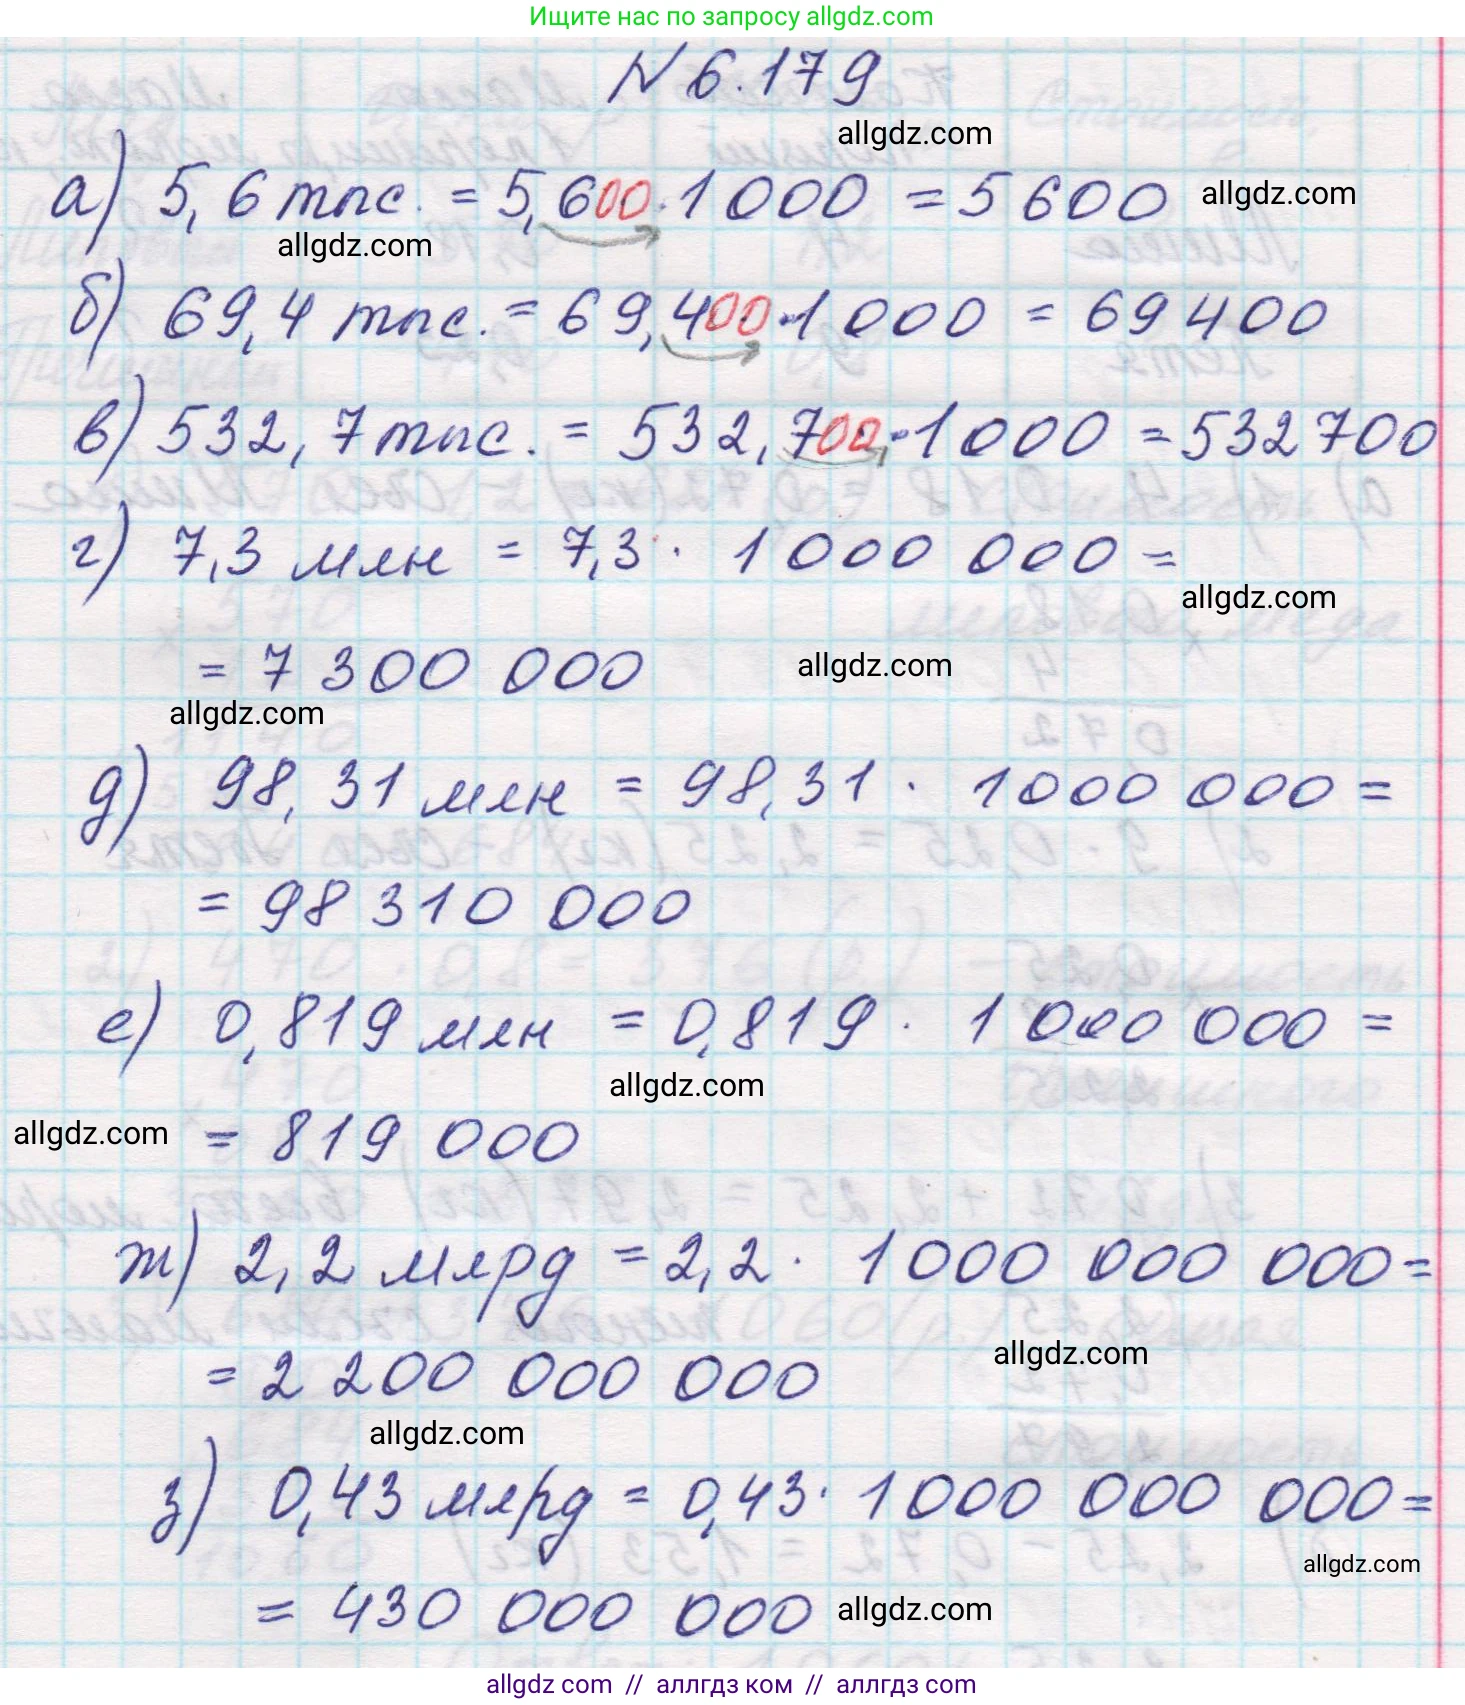 Ищите нас по запросу allgdz.com
№ 6.179
allgdz.com
а) 5,6 тыс. = 5,600 · 1 000 = 5 600
allgdz.com
allgdz.com
б) 69,4 тыс. = 69,400 · 1 000 = 69 400
в) 532,7 тыс. = 532,700 · 1 000 = 532 700
г) 7,3 млн = 7,3 · 1 000 000 =
allgdz.com
= 7 300 000
allgdz.com
allgdz.com
д) 98,31 млн = 98,31 · 1 000 000 =
= 98 310 000
е) 0,819 млн = 0,819 · 1 000 000 =
allgdz.com
allgdz.com
= 819 000
ж) 2,2 млрд = 2,2 · 1 000 000 000 =
allgdz.com
= 2 200 000 000
allgdz.com
з) 0,43 млрд = 0,43 · 1 000 000 000 =
allgdz.com
= 430 000 000
allgdz.com
allgdz.com // аллгдз ком // аллгдз.com